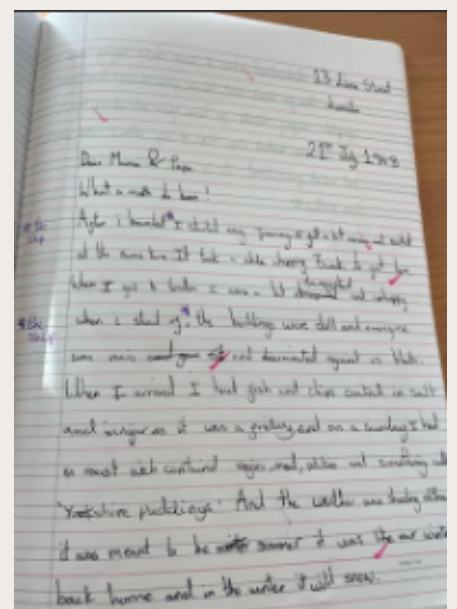 13 Street
London
21st July 1948
Dear Mama & Papa
What a month its been!
After i boarded * I started my journey I got a bit and excited
* the ship
at the same time. It took a while to get here.
When I got to London I was a bit and unhappy
when i of * the buildings were dull and everyone
* the ship
was and discriminated against us blacks.
When I arrived I had fish and chips coated in salt
and vinegar as it was a friday and on a sunday I had
a roast wich contained veggies, meat, and something called
'Yorkshire puddings'. And the weather was
it was meant to be summer it was like our winter
back home and in the winter it will snow.